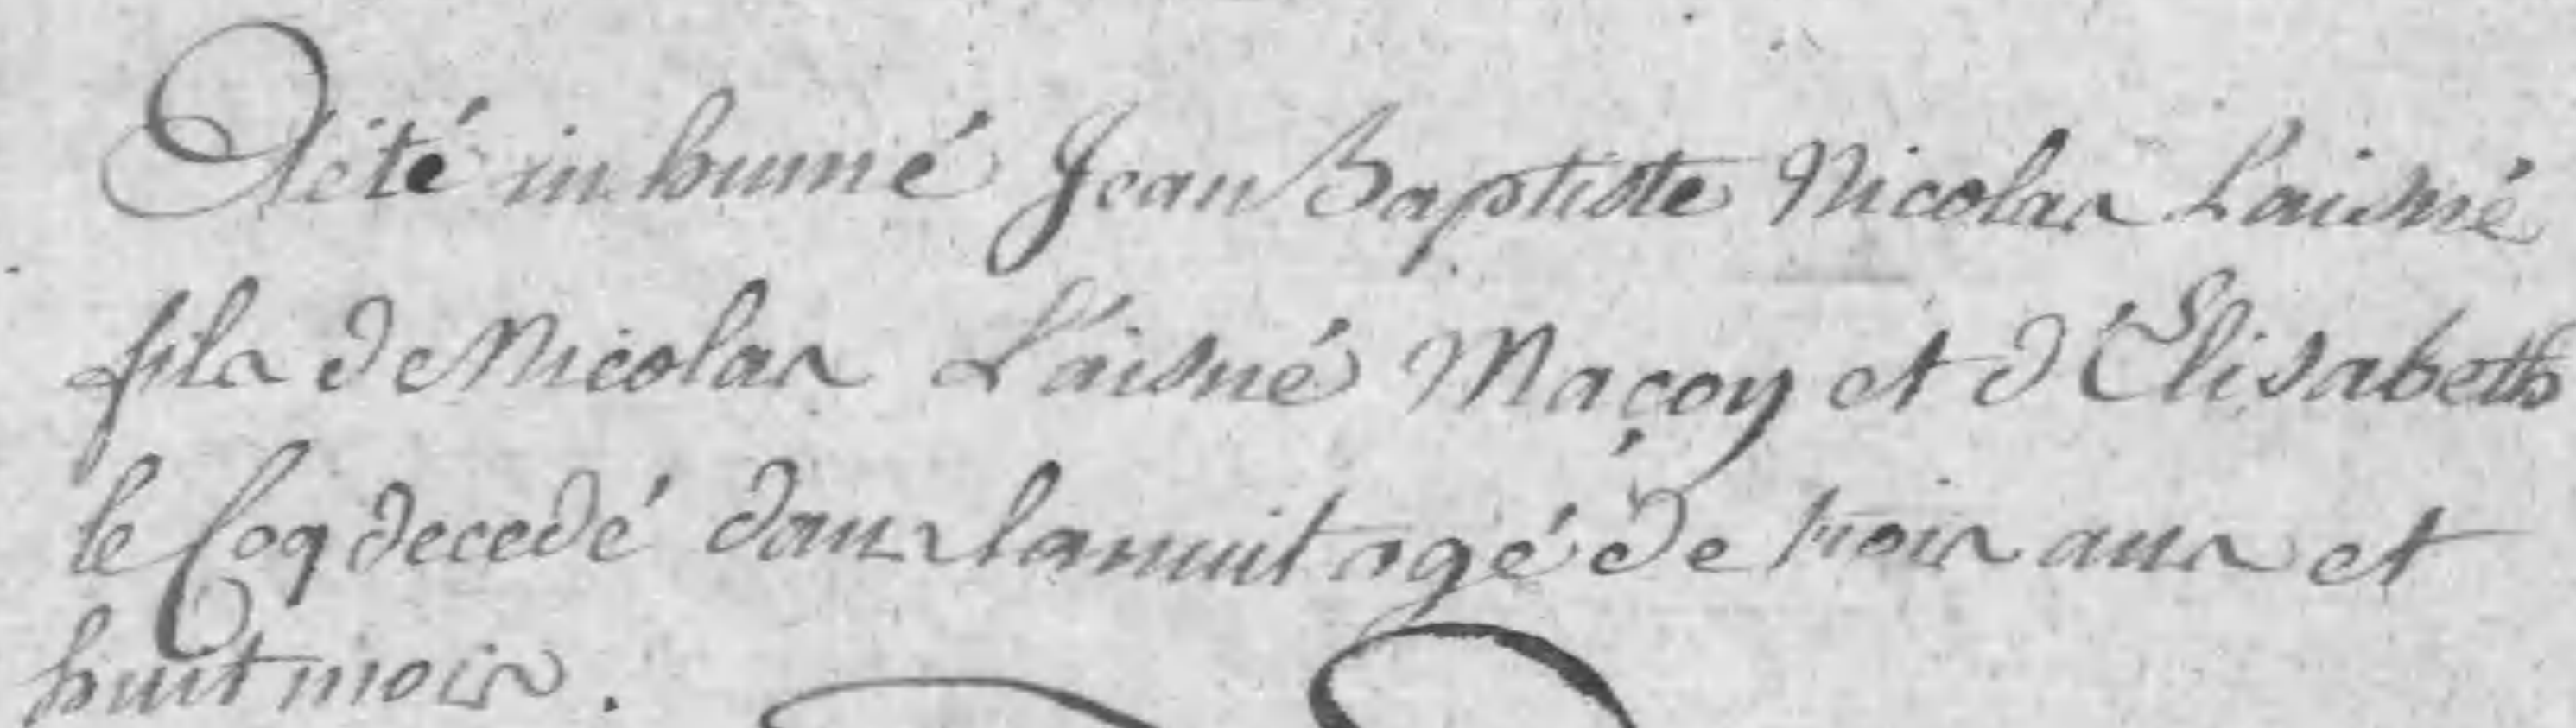 A été inhumé Jean Baptiste Nicolas Laisné
fils de Nicolas L'aisné Maçon et d'Élisabeth
le Coq decedé dans la nuit agé de trois ans et
huit mois.